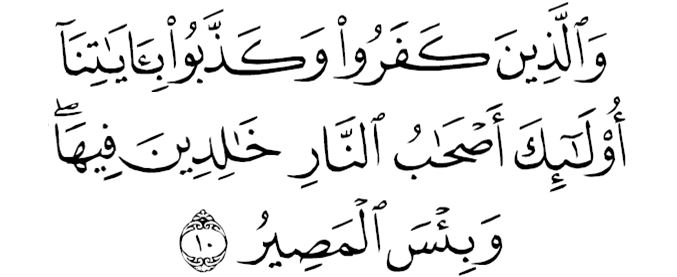 وَٱلَّذِينَ كَفَرُوا۟ وَكَذَّبُوا۟ بِـَٔايَـٰتِنَآ
أُو۟لَـٰٓئِكَ أَصْحَـٰبُ ٱلنَّارِ خَـٰلِدِينَ فِيهَا ۖ
وَبِئْسَ ٱلْمَصِيرُ ١٠